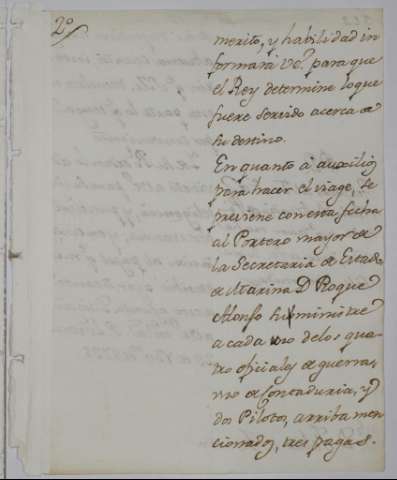 2º
merito, y habilidad in
formará V.E. para que
el Rey determine lo que
fuere servido acerca de
su destino.
En quanto à auxilios
para hacer el viage, se
previene con esta fecha
al Portero mayor de
la Secretaria de Estado
de Marina D. Roque
Alonso suministre
a cada uno de los qua
tro oficiales de guerra,
uno de Contaduria, y
dos Pilotos, arriba men
cionados, tres pagas.